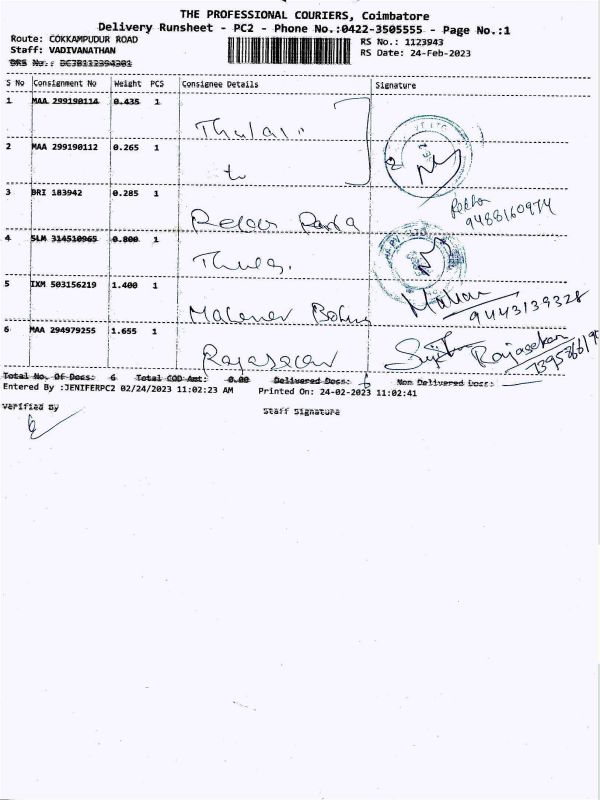 THE PROFESSIONAL COURIERS, Coimbatore
Delivery Runsheet - PC2 - Phone No.:0422-3505555 - Page No.:1
Route: COKKAMPUDUR ROAD
Staff: VADIVANATHAN
DRS No.: DCJB112394301
RS No.: 1123943
RS Date: 24-Feb-2023
S No Consignment No Weight PCS Consignee Details Signature
1 MAA 299190114 0.435 1 Thulasi
2 MAA 299190112 0.265 1
3 BRI 183942 0.285 1
9488160974
4 SLM 314510965 0.800 1
5 IXM 503156219 1.400 1
9443139328
6 MAA 294979255 1.655 1 Rajasekar
Rajasekar
Total No. Of Docs: 6 Total COD Amt: 0.00 Delivered Docs: 6 Non Delivered Docs:
Entered By :JENIFERPC2 02/24/2023 11:02:23 AM Printed On: 24-02-2023 11:02:41
Verified By Staff Signature